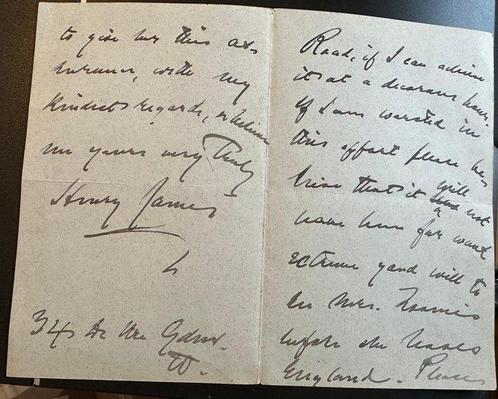 to give her this as-
surance, with my
kindest regards, & believe
me yours very truly
Henry James
34 De Vere Gdns.
W.
Road, if I can achieve
it at a decorous hour.
If I am worsted in
this effort please be-
lieve that it will not
have been for want
extreme good will to
see Mrs. Loomis
before she leaves
England. Please